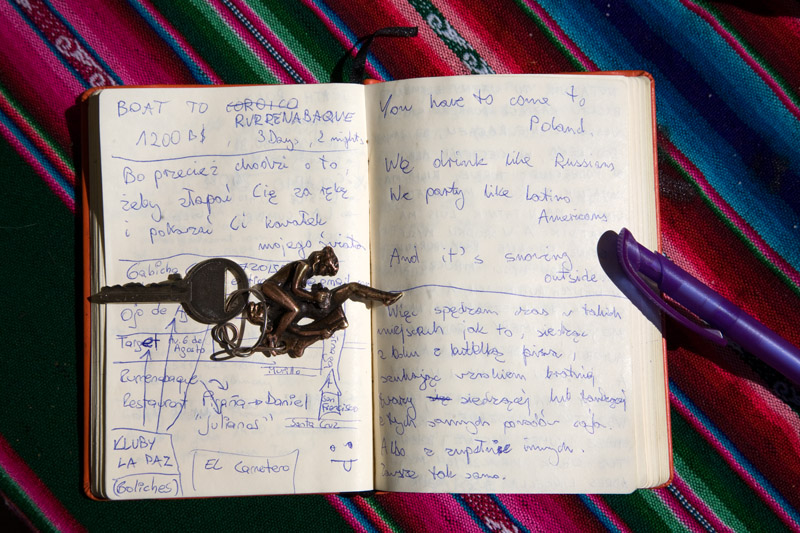 BOAT TO COROICO
RURRENABAQUE
1200 B$ 3 Days, 2 nights.
Bo przecież chodzi o to,
żeby złapać Cię za rękę
i pokazać Ci kawałek
mojego świata
Gabicha 2015
Ojo de
Target Av. 6 de
Agosto
Murillo
Rurrenabaque
Restaurant → Daniel
"Julianos"
San
Francisco
Santa Cruz
KLUBY
LA PAZ
(Boliches)
EL Carretero
You have to come to
Poland.
We drink like Russians
We party like Latino
Americans
And it's snowing
outside
Więc spędzam czas w takich
miejscach jak to, siedząc
z butelką piwa,
szukając wzrokiem
twarzy się siedzącej lub tańczącej
z tych samych powodów
Albo z zupełnie innych.
Zawsze tak samo.